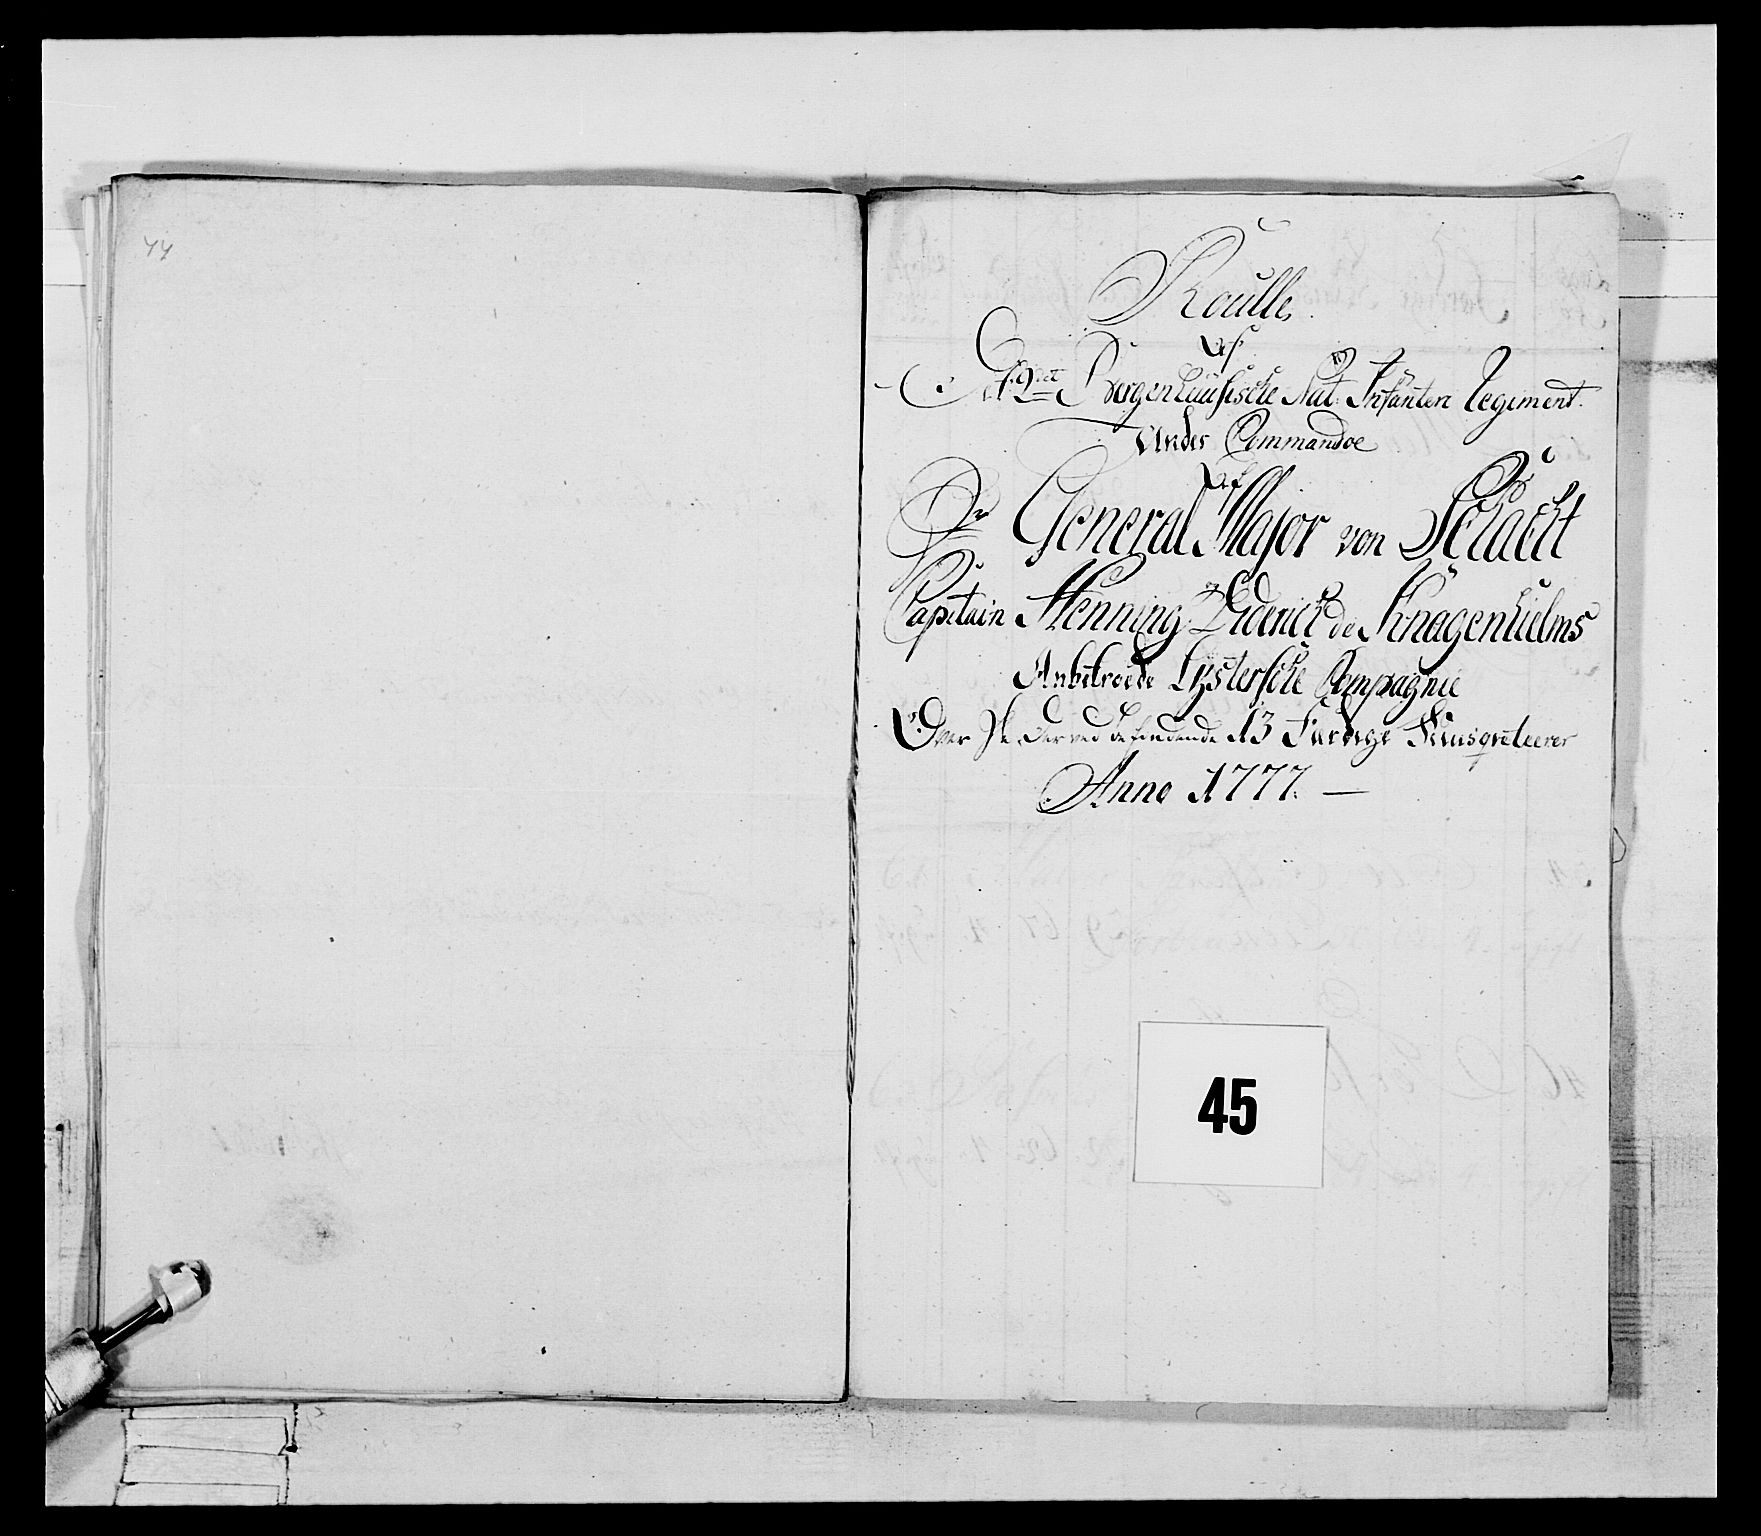 44
Roulle
Af
Det 2det Bergenhuusische Nat: Infanteri Regiment.
Under Commandoe
Af
Hr General Major von Schacht
Capitain Henning Diderich de Knagenhielms
Anbetroede Lysterske Compagnie
Over de derved befindende 13 Færdige Musqueteerer
Anno 1777.
45